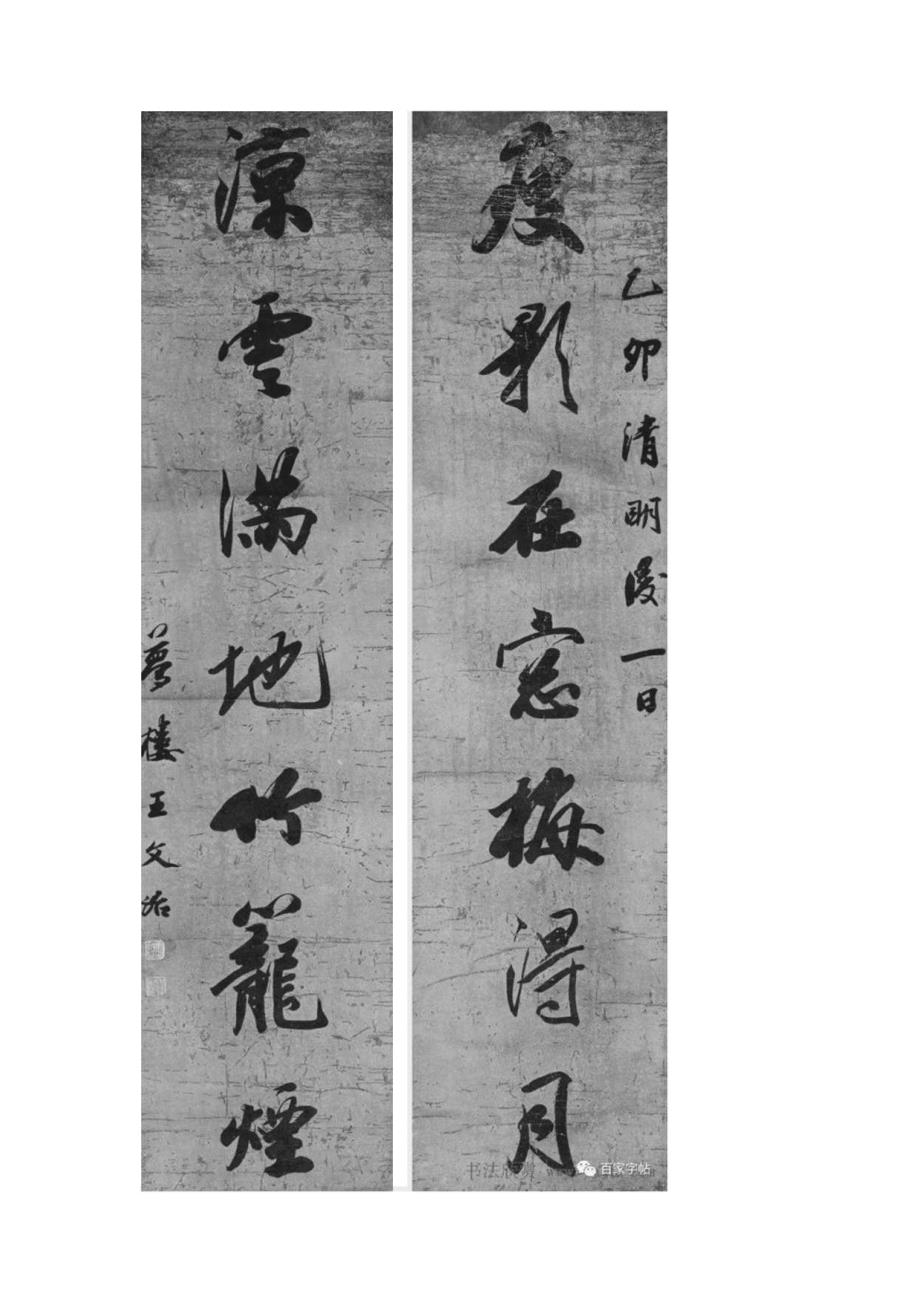 乙卯清明後一日
瘦影在窓梅得月
涼雲滿地竹籠煙
夢樓王文治
书法欣赏
百家字帖